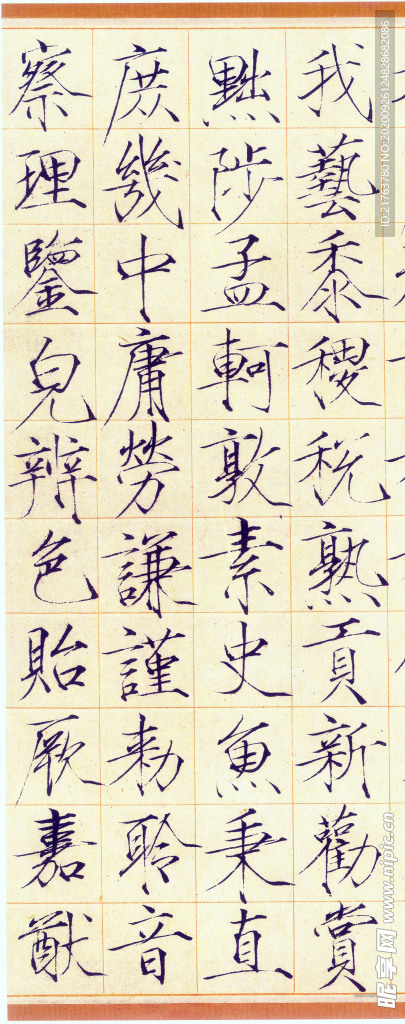 我藝黍稷税熟貢新勸賞
黜陟孟軻敦素史魚秉直
庶幾中庸勞謙謹勅聆音
察理鑒皃辨色貽厥嘉猷
ID:21763780 NO:20200926124828682086
昵享网 www.nipic.cn